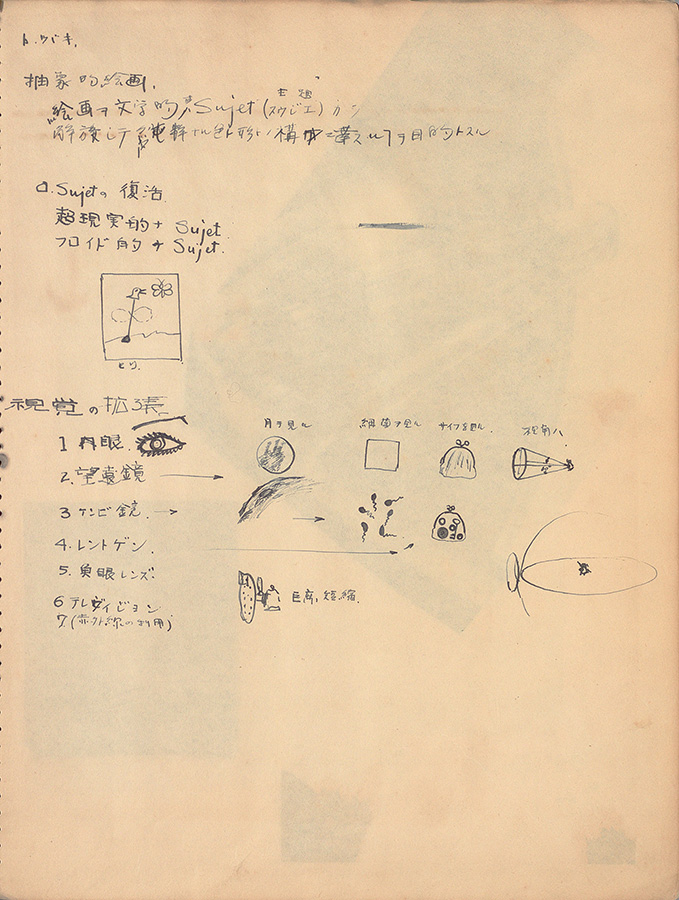 ト.ウバキ.
抽象的絵画.
主題
絵画ヲ文字的ナSujet (スウジエ) カラ
解放シテ純粋ナル色ト形トノ構成ニ換エルヿヲ目的トスル
Sujetの復活
超現実的ナ Sujet
フロイド的ナ Sujet.
ヒワ.
視覚の拡張
月ヲ見ル 細菌ヲ見ル サイフヲ見ル 視角ハ
1 肉眼.
2. 望遠鏡
3 ケンビ鏡.
4. レントゲン.
5. 魚眼レンズ.
巨离、短縮.
6 テレヴィジョン
7. (赤外線の利用)